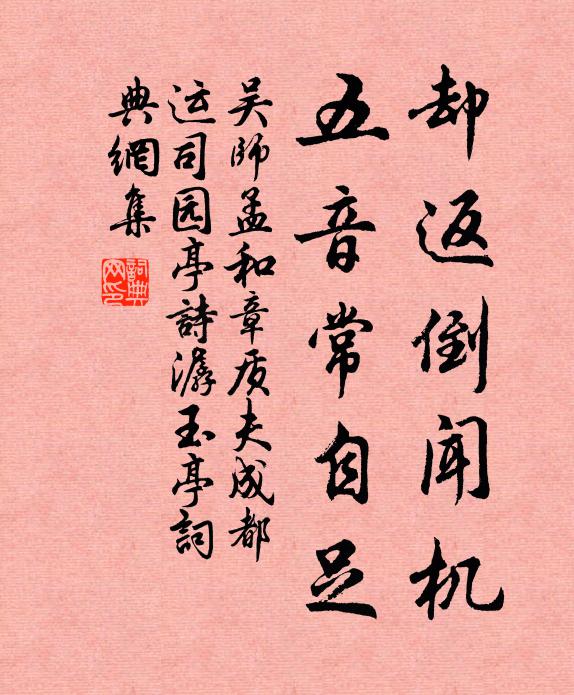 却返倒闻机
五音常自足
吴师孟和章质夫成都
运司园亭詩潺玉亭詞
典網集
詞典網印